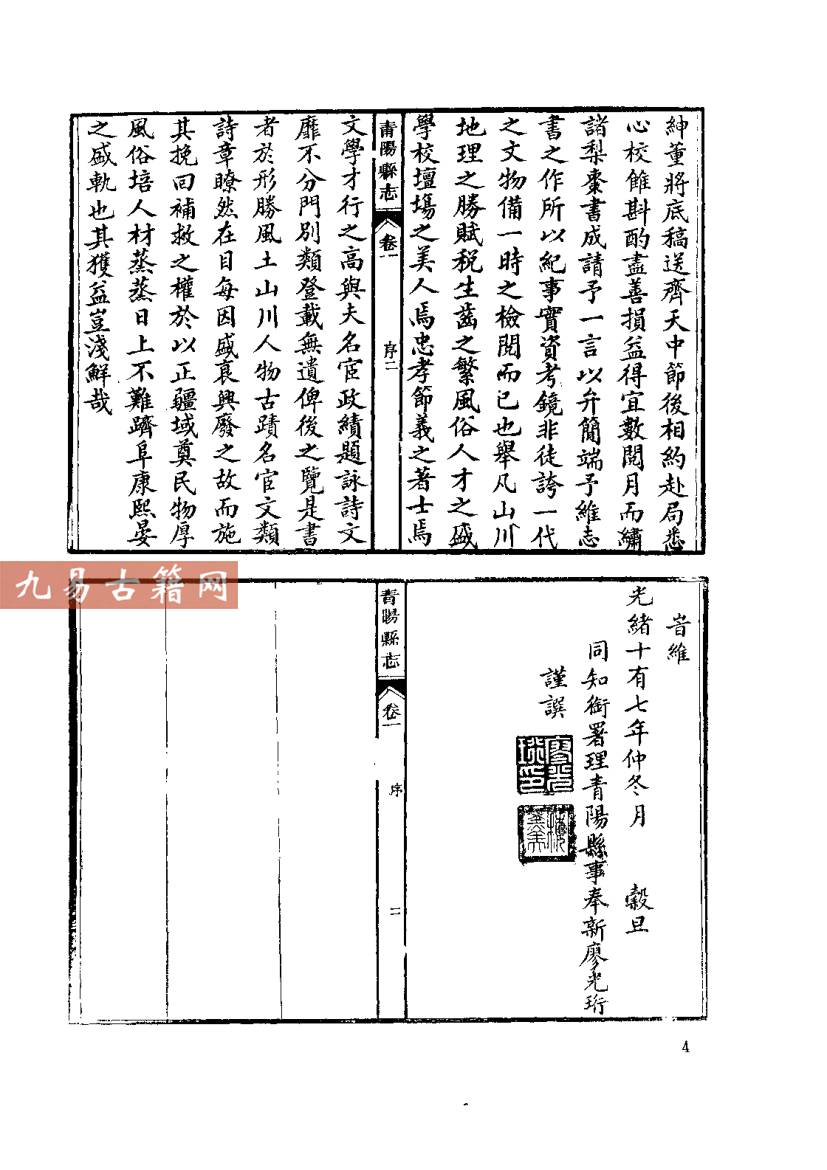 紳董將底稿送齊天中節後相約赴局悉
心校雠斟酌盡善損益得宜數閱月而繡
諸梨棗書成請予一言以弁簡端予維志
書之作所以紀事實資考鏡非徒誇一代
之文物備一時之檢閱而已也舉凡山川
地理之勝賦稅生齒之繁風俗人才之盛
學校壇場之美人焉忠孝節義之著士焉
青陽縣志
卷一
序二
文學才行之高與夫名宦政績題詠詩文
靡不分門別類登載無遺俾後之覽是書
者於形勝風土山川人物古蹟名宦文類
詩章瞭然在目每因盛衰興廢之故而施
其挽回補救之權於以正疆域奠民物厚
風俗培人材蒸蒸日上不難躋阜康熙晏
之盛軌也其獲益豈淺鮮哉
九易古籍网
旹維
光緒十有七年仲冬月 穀旦
同知銜署理青陽縣事奉新廖光珩
謹譔
廖光珩印
青陽縣志
卷一
序
二
4